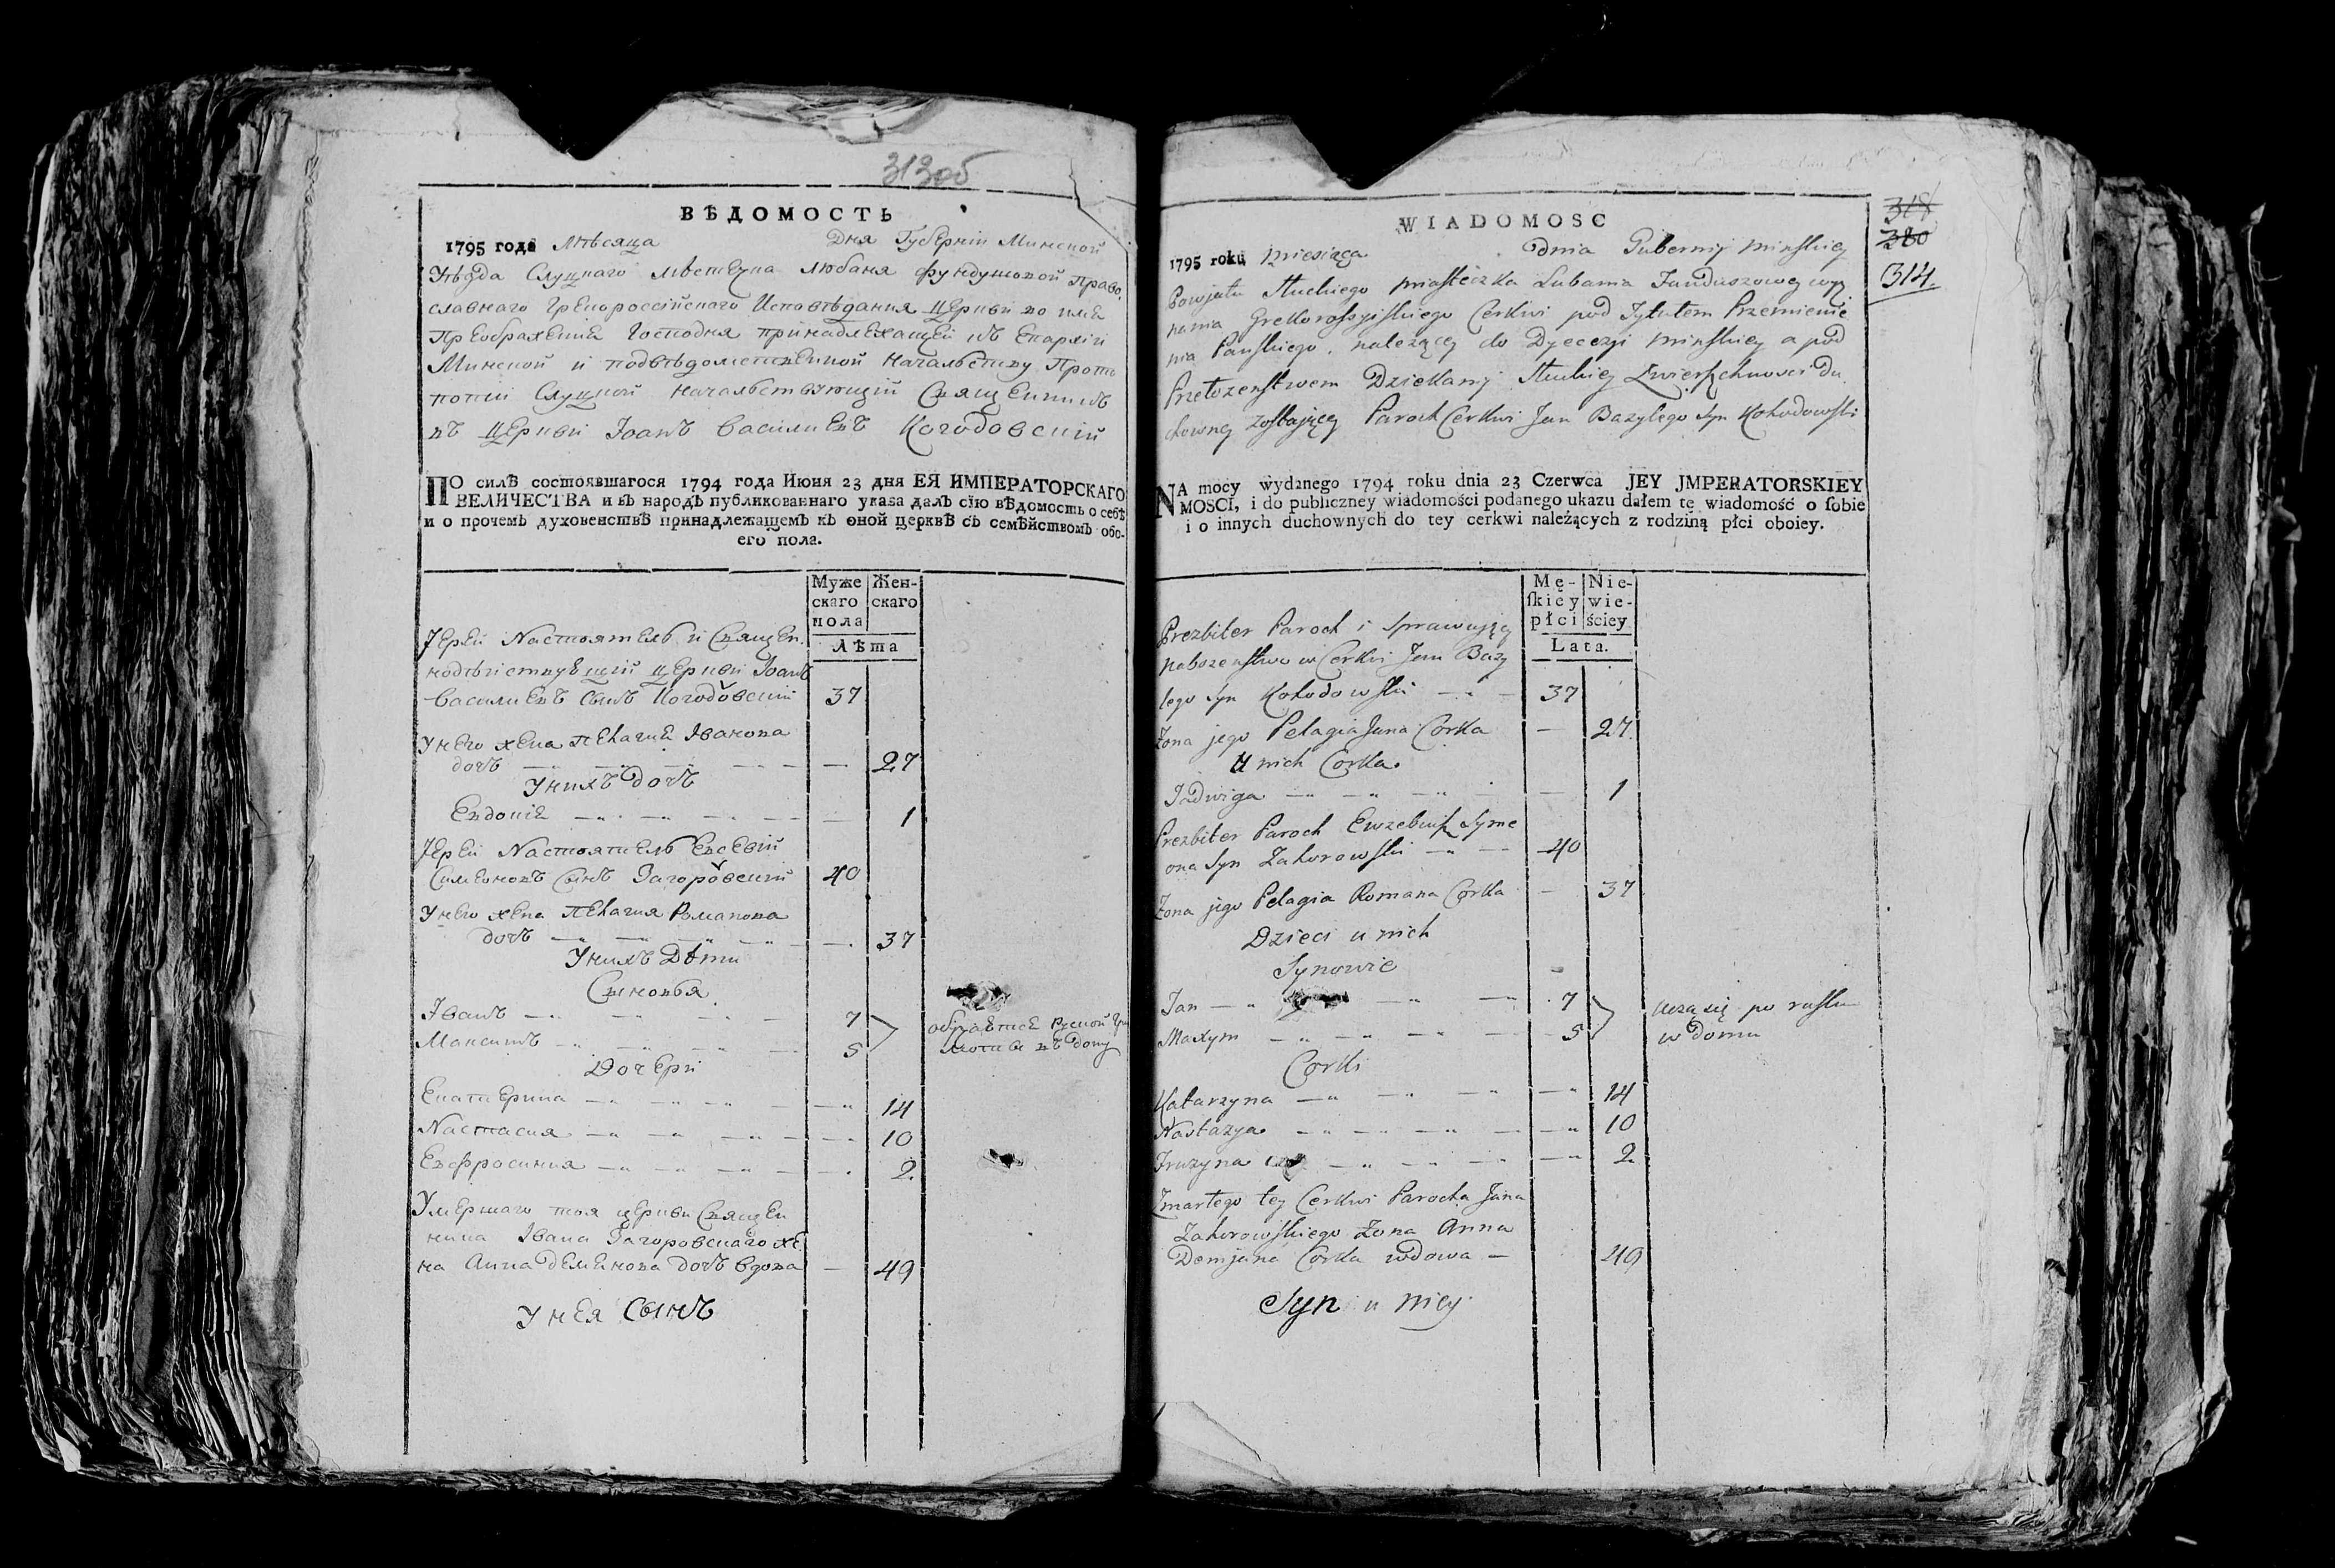 313об
ВѢДОМОСТЬ
1795 года Мѣсяца Дня Губерніи Минской
Уѣзда Слуцкаго мѣстечка Любаня фундушовой Право
славнаго Грекороссійского Исповѣдания церкви во имя
Преображенія Господня принадлежащей къ Епархіи
Минской и подвѣдомственной начальству Прото
попіи Слуцкой началствующій Священникъ
въ церкви Іоанъ Василиевъ Когодовскій
ПО силѣ состоявшагося 1794 года Июня 23 дня ЕЯ ИМПЕРАТОРСКАГО
ВЕЛИЧЕСТВА и въ народъ публикованнаго указа далъ сїю вѣдомость о себѣ
и о прочемъ духовенствѣ принадлежащемъ къ оной церквѣ съ семѣйствомъ обо-
его пола.
Муже скаго пола
Жен- скаго
Лѣта
Іерей Настоятель и Священ
нодѣйствующій церкви Іоанъ
Василиевъ сынъ Когодовскій 37
У него жена Пелагия Іванова
дочь — 27
У нихъ дочь
Евдокія — 1
Іерей Настоятель Евсевій
Симеоновъ сынъ Загоровскій 40
У него жена Пелагия Романова
дочь — 37
У нихъ Дѣти
Сыновья
Іванъ 7
Максимъ 5
въ дому
Дочери
Екатерина — 14
Настасия — 10
Евфросиния — 2
Умершаго тоя церкви Священ
ника Івана Загоровскаго же
на Анна Демянова дочь вдова — 49
У нея сынъ
318
380
314.
WIADOMOSC
1795 roku miesiąca dnia Gubernij Minskiey
Powjatu Słuckiego miasteczka Lubania Funduszowey wyz
nania Grekorossyiskiego Cerkwi pod Tytułem Przemienie
nia Pańskiego, należącey do Dyecezyi Minskiey a pod
Przełozenstwem Dziekanij Słuckiey Zwierzchnosci Du
chowney zostaiącey Paroch Cerkwi Jan Bazylego syn Kohodowski
NA mocy wydanego 1794 roku dnia 23 Czerwca JEY JMPERATORSKIEY
MOSCI, i do publiczney wiadomości podanego ukazu dałem tę wiadomość o sobie
i o innych duchownych do tey cerkwi należących z rodziną płci oboiey.
Mę- skiey płci
Nie- wie- ściey
Lata.
Prezbiter Paroch i sprawuiący
nabozenstwo w Cerkwi Jan Bazy
lego syn Kohodowski — 37
Zona jego Pelagia Jana Corka — 27
U nich Corka
Jadwiga — 1
Prezbiter Paroch Euzebiusz Syme
ona Syn Zahorowski — 40
Zona jego Pelagia Romana Corka — 37
Dzieci u nich
Synowie
Jan — 7
Maxym — 5
uczą się po rusku
w domu
Corki
Katarzyna — 14
Nastazya — 10
Fruzyna — 2
Zmarłego tey Cerkwi Parocha Jana
Zahorowskiego Zona Anna
Demjana Corka wdowa — 49
Syn u niey